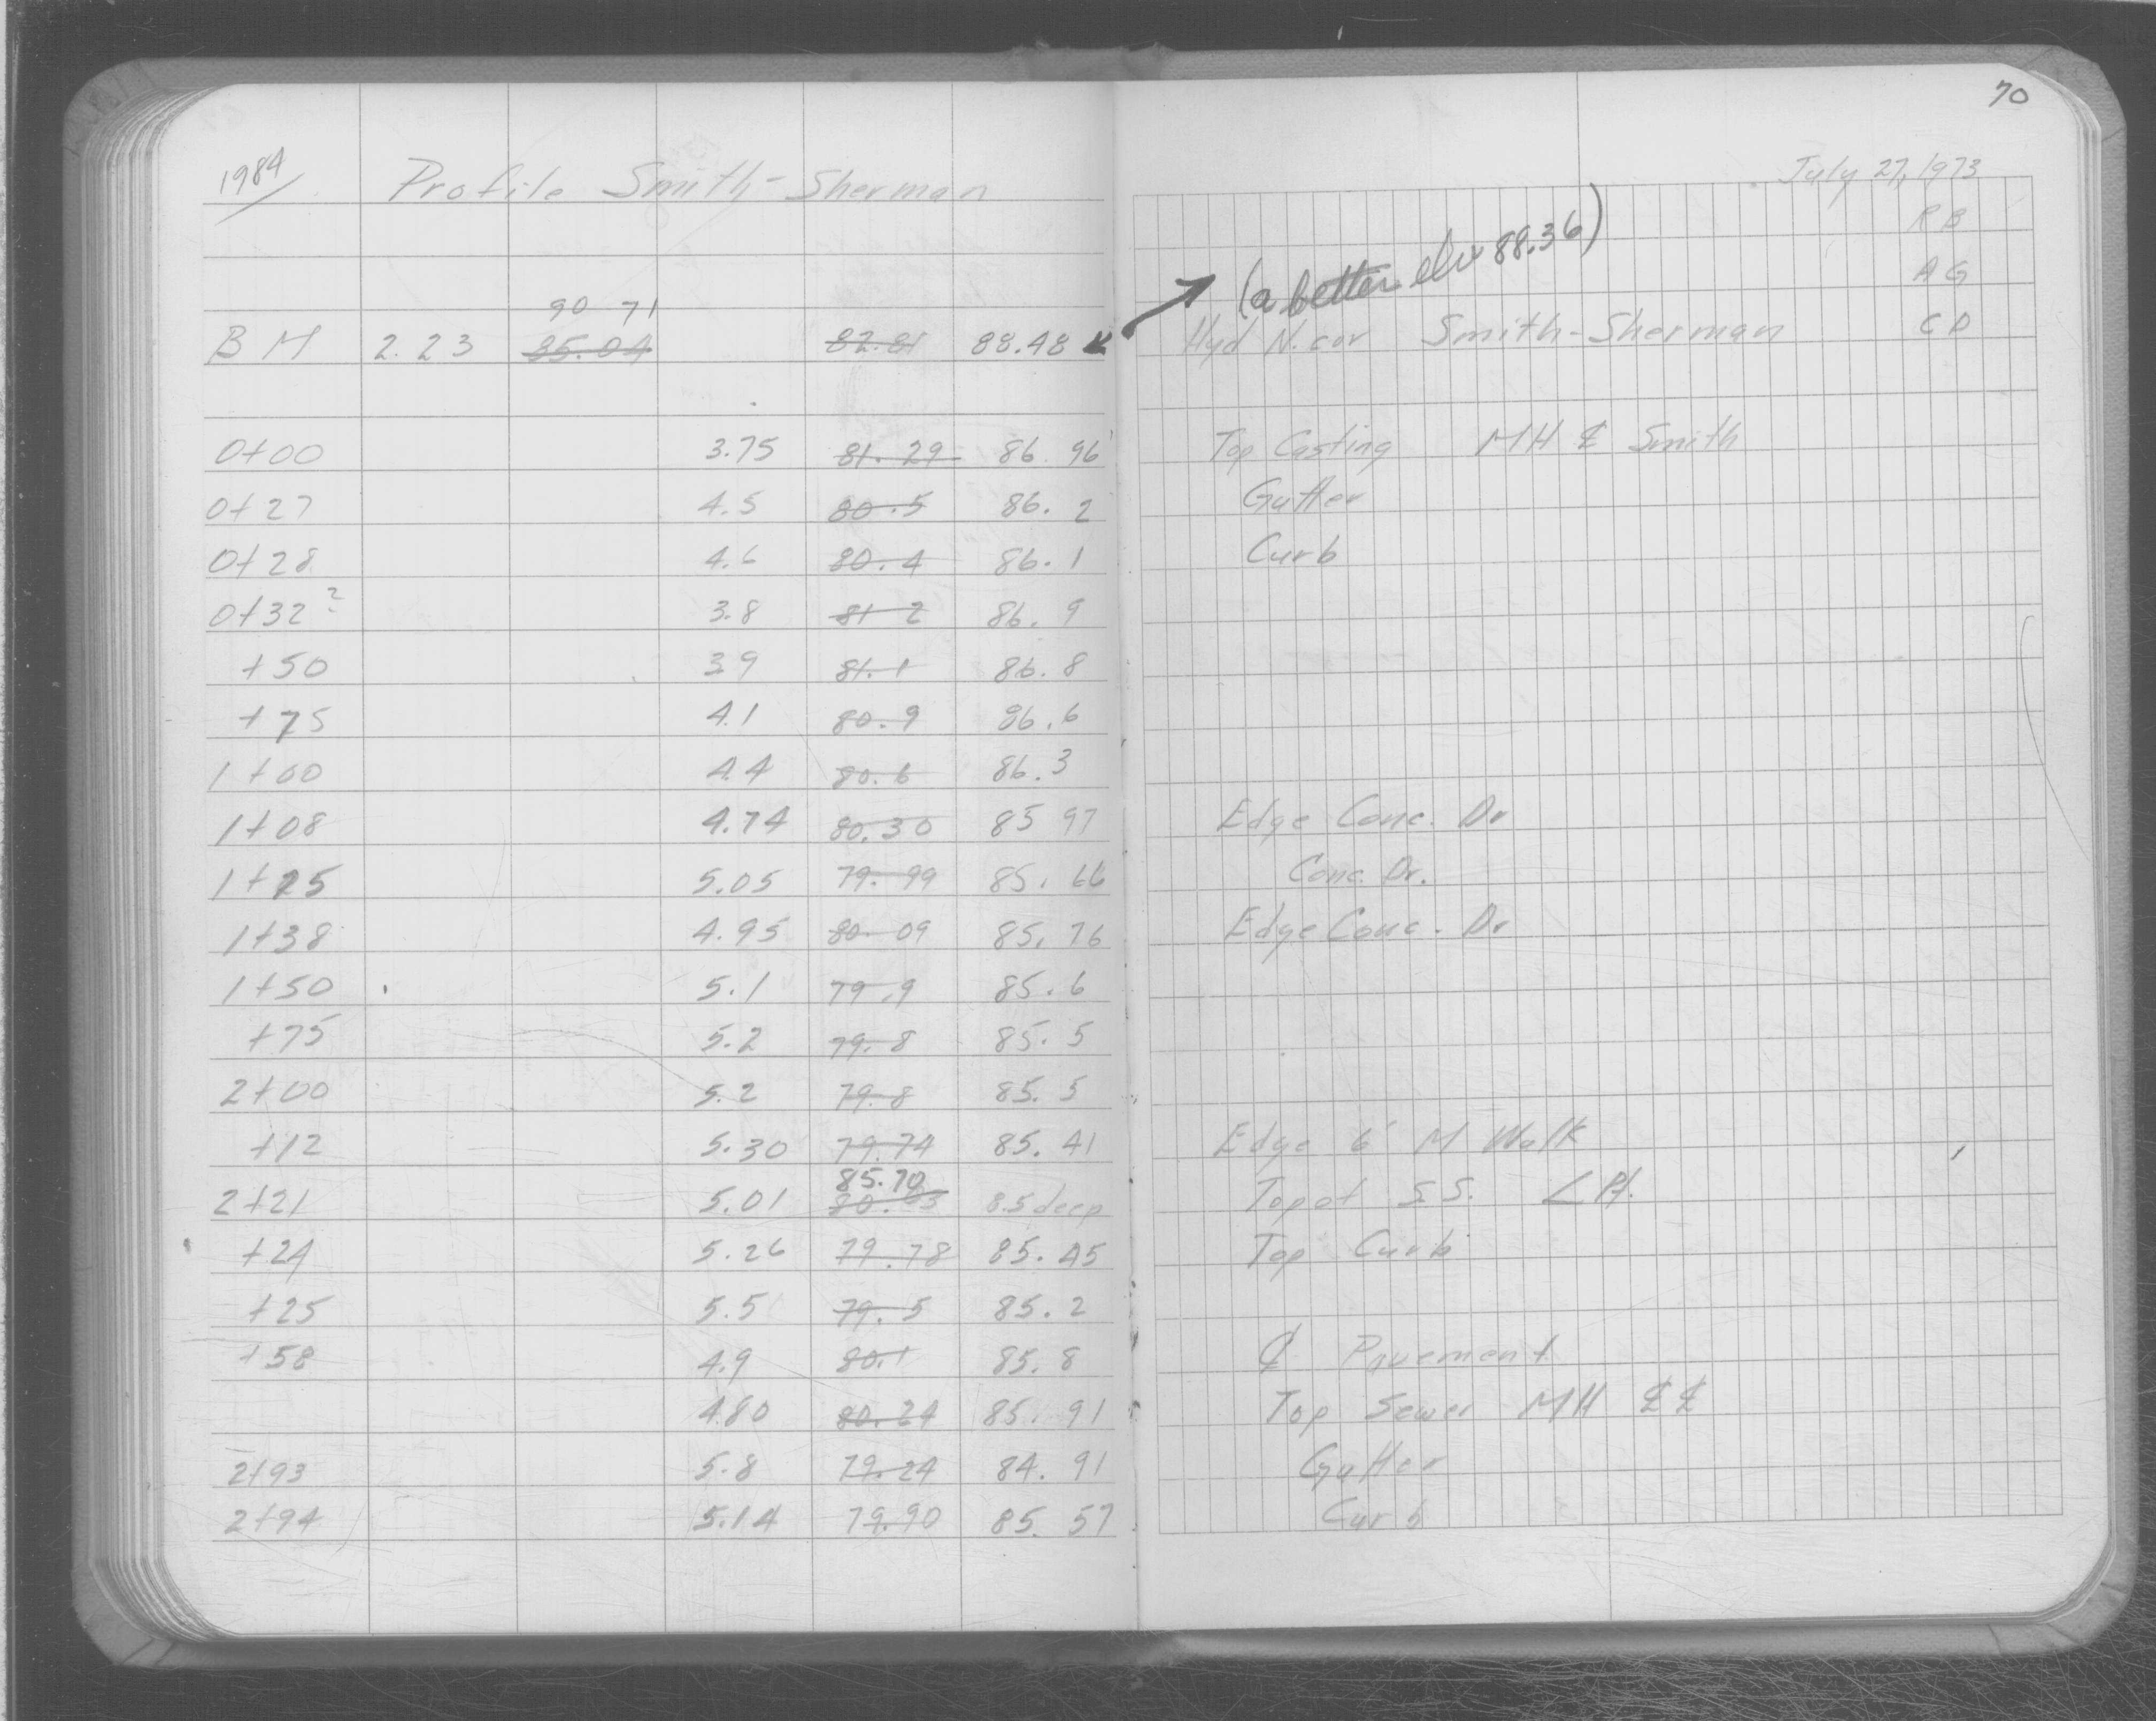 70
1984 Profile Smith-Sherman July 27, 1973
RB
(a better elev 88.36)
AG
90 71
BM 2.23 85.04 82.81 88.48 Hyd N. cor Smith-Sherman CD
0+00 3.75 81.29 86.96 Top Casting MH ℄ Smith
0+27 4.5 80.5 86.2 Gutter
0+28 4.6 80.4 86.1 Curb
0+32 ? 3.8 81 2 86.9
+50 3.9 81.1 86.8
+75 4.1 80.9 86.6
1+00 4.4 80.6 86.3
1+08 4.74 80.30 85 97 Edge Conc. Dr
1+25 5.05 79.99 85.66 Conc. Dr.
1+38 4.95 80.09 85.76 Edge Conc. Dr
1+50 5.1 79.9 85.6
+75 5.2 79.8 85.5
2+00 5.2 79.8 85.5
+12 5.30 79.74 85.41 Edge 6' M Walk
85.70
2+21 5.01 80.03 8.5 deep Top of S.S. L Pt.
+24 5.26 79.78 85.45 Top Curb
+25 5.5 79.5 85.2
+58 4.9 80.1 85.8 ℄ Pavement
4.80 80.24 85.91 Top Sewer MH ℄ ℄
2+93 5.8 79.24 84.91 Gutter
2+94 5.14 79.90 85.57 Curb